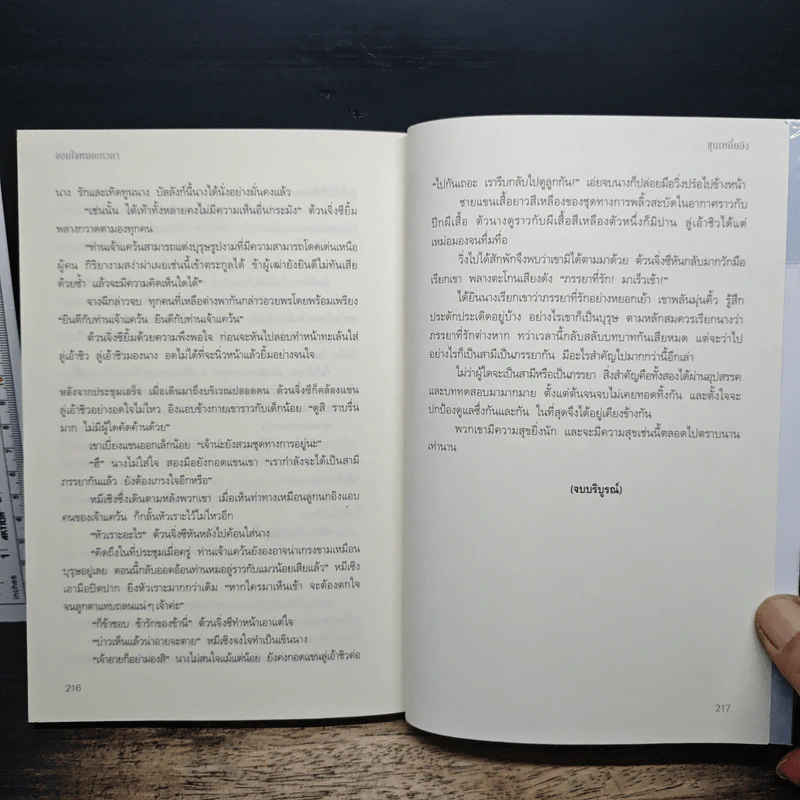 จอมใจหมอเทวดา
นาง รักและเทิดทูนนาง บัลลังก์นี้นางได้นั่งอย่างมั่นคงแล้ว
“เช่นนั้น ใต้เท้าทั้งหลายคงไม่มีความเห็นอื่นกระมัง” ต้วนจิ่งซียิ้ม
พลางกวาดตามองทุกคน
“ท่านเจ้าแคว้นสามารถแต่งบุรุษรูปงามที่มีความสามารถโดดเด่นเหนือ
ผู้คน กิริยางามสง่าผ่าเผยเช่นนี้เข้าตระกูลได้ ข้าผู้เฒ่ายังยินดีไม่ทันเสีย
ด้วยซ้ำ แล้วจะมีความคิดเห็นใดได้”
จางฉีกล่าวจบ ทุกคนที่เหลือต่างพากันกล่าวอวยพรโดยพร้อมเพรียง
“ยินดีกับท่านเจ้าแคว้น ยินดีกับท่านเจ้าแคว้น”
ต้วนจิ่งซียิ้มด้วยความพึงพอใจ ก่อนจะหันไปลอบทำหน้าทะเล้นใส่
ลู่เอ้าชิว ลู่เอ้าชิวมองนาง อดไม่ได้ที่จะนิ่วหน้าแล้วยิ้มอย่างจนใจ
หลังจากประชุมเสร็จ เมื่อเดินมาถึงบริเวณปลอดคน ต้วนจิ่งซีก็คล้องแขน
ลู่เอ้าชิวอย่างอดใจไม่ไหว อิงแอบข้างกายเขาราวกับเด็กน้อย “ดูสิ ราบรื่น
มาก ไม่มีผู้ใดคัดค้านด้วย”
เขาเบี่ยงแขนออกเล็กน้อย “เจ้าน่ะยังสวมชุดทางการอยู่นะ”
“ฮึ” นางไม่ใส่ใจ สองมือยังกอดแขนเขา “เรากำลังจะได้เป็นสามี
ภรรยากันแล้ว ยังต้องเกรงใจอีกหรือ”
หมีเชิงซึ่งเดินตามหลังพวกเขา เมื่อเห็นท่าทางเหมือนลูกนกอิงแอบ
คนของเจ้าแคว้น ก็กลั้นหัวเราะไว้ไม่ไหวอีก
“หัวเราะอะไร” ต้วนจิ่งซีหันหลังไปค้อนใส่นาง
“คิดถึงในที่ประชุมเมื่อครู่ ท่านเจ้าแคว้นยังองอาจน่าเกรงขามเหมือน
บุรุษอยู่เลย ตอนนี้กลับออดอ้อนท่านหมอลู่ราวกับแมวน้อยเสียแล้ว” หมีเชิง
เอามือปิดปาก ยิ่งหัวเราะมากกว่าเดิม “หากใครมาเห็นเข้า จะต้องตกใจ
จนลูกตาแทบถลนแน่ๆ เจ้าค่ะ”
“ก็ข้าชอบ ข้ารักของข้านี่” ต้วนจิ่งซีทำหน้าเอาแต่ใจ
“บ่าวเห็นแล้วน่าอายจะตาย” หมีเชิงจงใจทำเป็นเขินนาง
“เจ้าอายก็อย่ามองสิ” นางไม่สนใจแม้แต่น้อย ยังคงกอดแขนลู่เอ้าชิวต่อ
216
ชุนเหยี่ยอิง
“ไปกันเถอะ เรารีบกลับไปดูลูกกัน!” เอ่ยจบนางก็ปล่อยมือวิ่งปร๋อไปข้างหน้า
ชายแขนเสื้อยาวสีเหลืองของชุดทางการพลิ้วสะบัดในอากาศราวกับ
ปีกผีเสื้อ ตัวนางดูราวกับผีเสื้อสีเหลืองตัวหนึ่งก็มิปาน ลู่เอ้าชิวได้แต่
เหม่อมองจนทึ่มทื่อ
วิ่งไปได้สักพักจึงพบว่าเขามิได้ตามมาด้วย ต้วนจิ่งซีหันกลับมากวักมือ
เรียกเขา พลางตะโกนเสียงดัง “ภรรยาที่รัก! มาเร็วเข้า!”
ได้ยินนางเรียกเขาว่าภรรยาที่รักอย่างหยอกเย้า เขาพลันมุ่นคิ้ว รู้สึก
ประดักประเดิดอยู่บ้าง อย่างไรเขาก็เป็นบุรุษ ตามหลักสมควรเรียกนางว่า
ภรรยาที่รักต่างหาก ทว่าเวลานี้กลับสลับบทบาทกันเสียหมด แต่จะว่าไป
อย่างไรก็เป็นสามีเป็นภรรยากัน มีอะไรสำคัญไปมากกว่านี้อีกเล่า
ไม่ว่าผู้ใดจะเป็นสามีหรือเป็นภรรยา สิ่งสำคัญคือทั้งสองได้ผ่านอุปสรรค
และบททดสอบมามากมาย ตั้งแต่ต้นจนจบไม่เคยทอดทิ้งกัน และตั้งใจจะ
ปกป้องดูแลซึ่งกันและกัน ในที่สุดจึงได้อยู่เคียงข้างกัน
พวกเขามีความสุขยิ่งนัก และจะมีความสุขเช่นนี้ตลอดไปตราบนาน
เท่านาน
(จบบริบูรณ์)
217